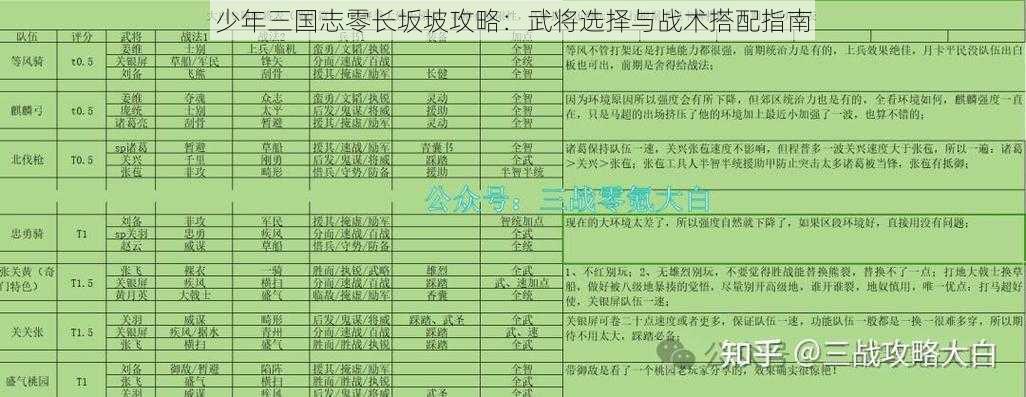 少年三国志零长坂坡攻略：武将选择与战术搭配指南
队伍 评分 武将 战法1 兵书1 装备 加点
等风骑 t0.5 姜维 士别 上兵/临机 蛮勇/文韬/执锐 全智 等风不管打架还是打地能力都很强，前期统治力是有的，上兵效果绝佳，月卡平民没队伍出白板也可出，前期是舍得给战法；
关银屏 草船/军民 锋矢 分而/速战/百战 全统
刘备 飞熊 刮骨 援其/掩虚/励军 长健 全智
麒麟弓 t0.5 姜维 夺魂 众志 蛮勇/文韬/执锐 灵动 全智 因为环境原因所以强度会有所下降，但郊区统治力也是有的，全看环境如何，麒麟强度一直在，只是马超的出场挤压了他的环境加上最近小加强了一波，也算不错的；
庞统 士别 太平 后发/鬼谋/将威 灵动 全智
诸葛亮 刮骨 暂避 援其/掩虚/励军 灵动 全智
北伐枪 T0.5 sp诸葛 暂避 草船 援其/速战/励军 青囊书 全智 诸葛保持队伍一速，关兴张苞速度不影响，但程普多一波关兴速度大于张苞，所以一遍：诸葛>关兴>张苞；张苞工具人半智半统援助甲防止突击太多诸葛被当锋，张苞有抵御；
关兴 千里 刚勇 后发/鬼谋/将威 踩踏 全武
张苞 非攻 畸形 援其/掩虚/励军 援助 半智半统
公众号：三战零氪大白
忠勇骑 T1 刘备 非攻 军民 援其/掩虚/励军 智统加点 现在的大环境太差了，所以强度自然就下降了，如果区段环境好，直接用没有问题；
sp关羽 忠勇 疾风 分而/速战/百战 全武
赵云 威谋 草船 借兵/守势/防备 全统
张关黄（奇门特色） T1.5 张飞 裸衣 一骑 胜而/执锐/武略 雄烈 全武 1、不红别玩；2、无雄烈别玩，不要觉得胜战能替换熊裂，替换不了一点；打地大戟士换草船，做好被八级地暴揍的觉悟，尽量别开高级地，谁开谁裂，地奴慎用，唯一优点：打马超好使，关银屏队伍一速；
关银屏 疾风 横扫 分而/速战/百战 武、速加点
黄月英 大戟士 盛气 临敌/掩虚/励军 香囊 全统
关关张 T1.5 关羽 威谋 畸形 后发/鬼谋/将威 踩踏、武圣 全武 关银屏可卷二十点速度或者更多，保证队伍一速，功能队伍一般都是一换一很难多穿，所以期待不用太大，踩踏必备；
关银屏 疾风/据水 青州 分而/速战/百战 踩踏 武、速
张飞 横扫 盛气 借兵/守势/防备 踩踏 全武
盛气桃园 T1 刘备 御敌/暂避 陷阵 援其/掩虚/励军 全智 带御敌是看了一个桃园老玩家分享的，效果确实很惊艳！
张飞 盛气 横扫 胜而/胜战/执锐 全武
关羽 威谋 疾风 后发/鬼谋/将威 武圣 全武
知乎 @三战攻略大白